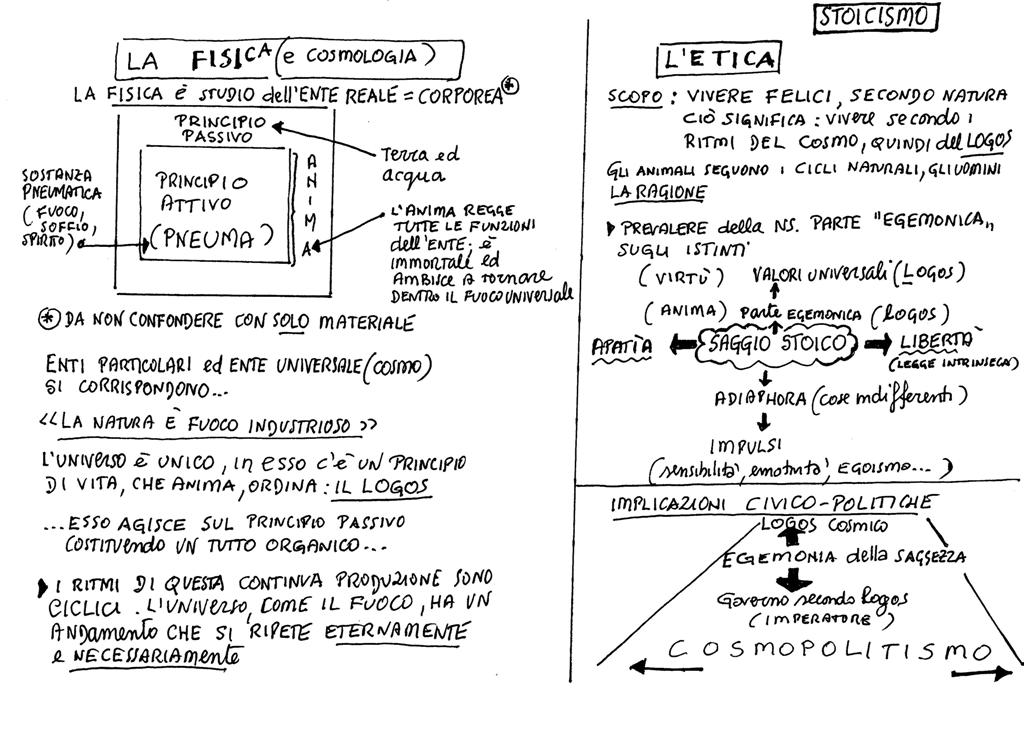 STOICISMO
LA FISICA (e COSMOLOGIA)
LA FISICA È STUDIO dell'ENTE REALE = CORPOREA *
PRINCIPIO
PASSIVO
PRINCIPIO
ATTIVO
(PNEUMA)
ANIMA
SOSTANZA
PNEUMATICA
(FUOCO,
SOFFIO,
SPIRITO)
Terra ed
acqua
L'ANIMA REGGE
TUTTE LE FUNZIONI
dell'ENTE; è
IMMORTALE ed
AMBISCE A TORNARE
DENTRO IL FUOCO UNIVERSALE
* DA NON CONFONDERE CON SOLO MATERIALE
ENTI PARTICOLARI ed ENTE UNIVERSALE (COSMO)
SI CORRISPONDONO...
<<LA NATURA È FUOCO INDUSTRIOSO>>
L'UNIVERSO È UNICO, IN ESSO C'È UN PRINCIPIO
DI VITA, CHE ANIMA, ORDINA: IL LOGOS
...ESSO AGISCE SUL PRINCIPIO PASSIVO
COSTITUENDO UN TUTTO ORGANICO...
I RITMI DI QUESTA CONTINUA PRODUZIONE SONO
CICLICI. L'UNIVERSO, COME IL FUOCO, HA UN
ANDAMENTO CHE SI RIPETE ETERNAMENTE
e NECESSARIAMENTE
L'ETICA
SCOPO: VIVERE FELICI, SECONDO NATURA
CIÒ SIGNIFICA: VIVERE SECONDO I
RITMI DEL COSMO, QUINDI del LOGOS
GLI ANIMALI SEGUONO I CICLI NATURALI, GLI UOMINI
LA RAGIONE
PREVALERE della NS. PARTE "EGEMONICA"
SUGLI ISTINTI
(VIRTÙ) VALORI UNIVERSALI (LOGOS)
(ANIMA) parte EGEMONICA (LOGOS)
APATIA SAGGIO STOICO LIBERTÀ
(LEGGE INTRINSECA)
ADIAPHORA (cose indifferenti)
IMPULSI
(sensibilità, emotività, EGOISMO...)
IMPLICAZIONI CIVICO-POLITICHE
LOGOS COSMICO
EGEMONIA della SAGGEZZA
Governo secondo logos
(IMPERATORE)
COSMOPOLITISMO